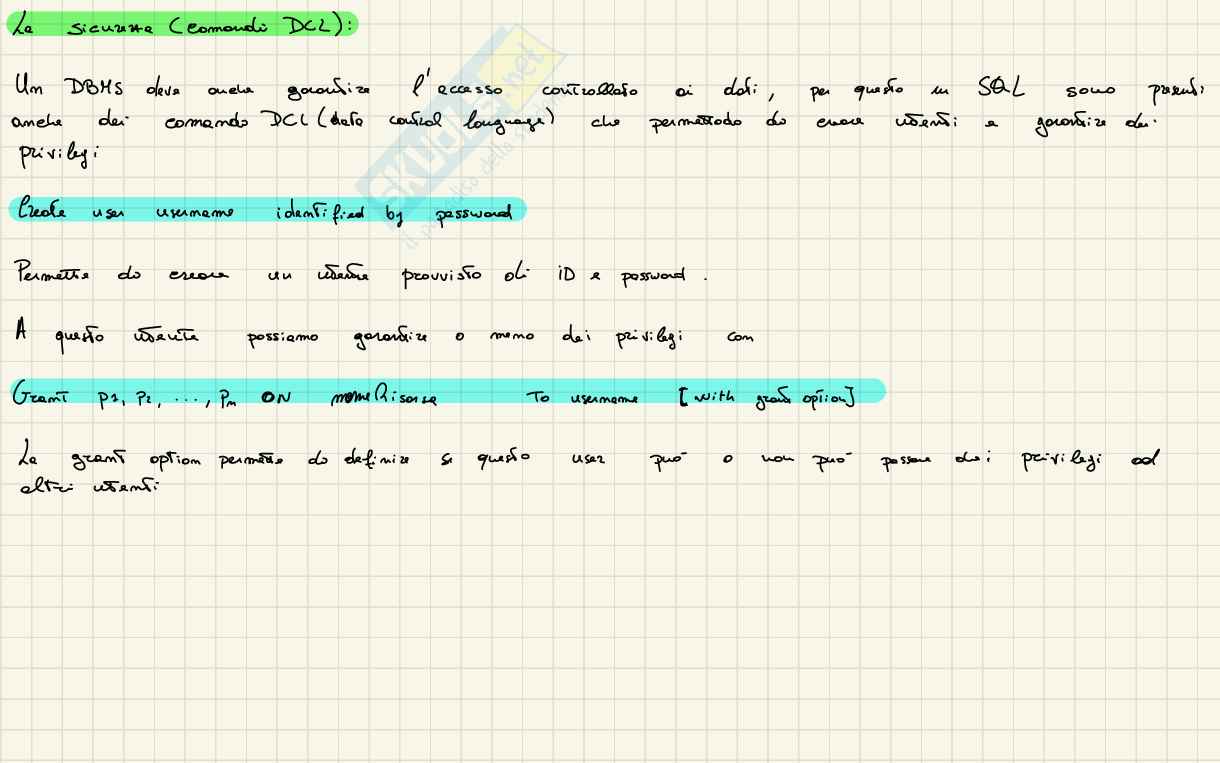 La sicurezza (comandi DCL):
Un DBMS deve anche garantire l'accesso controllato ai dati, per questo in SQL sono presenti
anche dei comando DCL (data control language) che permettodo do creare utenti e garantire dei
privilegi
Create user username identified by password
Permette do creare un utente provvisto di iD e password.
A questo utente possiamo garantire o meno dei privilegi con
Grant p1, p2, ..., pn ON nomeRisorsa To username [with grant option]
La grant option permette do definire se questo user può o non può passare dei privilegi ad
altri utenti
SKUOLA.net
il paradiso dello